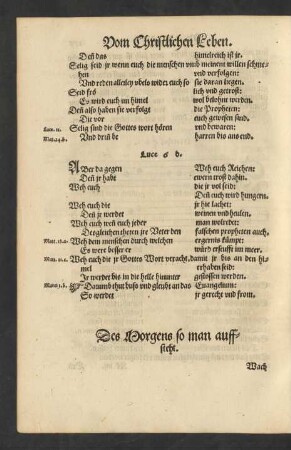 Vom Christlichen Leben.
Deñ das himelreich ist je.
Selig seid je wenn euch die menschen vmb meinem willen schme-
hen vnd verfolgen:
Vnd reden allerley vbels widder euch so sie daran liegen.
Seid frö lich vnd getrost:
Es wird euch im himel wol belohnt werden.
Deñ also haben sie verfolgt die Propheten:
Die vor euch gewesen sind.
Luce. 11. Selig sind die Gottes wort hören vnd bewaren:
Mat. 24. b. Vnd drin be harren bis ans end.
Luce 6 d.
ABer da gegen Weh euch Reichen:
Deñ jr habt ewern trost dahin.
Weh euch die jr vol seid:
Deñ euch wird hungern.
Weh euch die jr hie lachet:
Deñ jr werdet weinen vnd heulen.
Weh euch weñ euch jeder man wolredet:
Dergleichen theten jre Veter den falschen propheten auch.
Mat. 18. a. Weh dem menschen durch welchen ergernis kümpt:
Es wert besser er würd erseufft im meer.
Mat. 11. c. Weh euch die je Gottes Wort veracht, damit je bis an den hi-
mel erhaben seid:
Je werdet bis in die helle hinunter gestossen werden.
Marci 1. b. Darumb thut buss vnd gleubt an das Euangelium:
So werdet je gerecht vnd from.
Des Morgens so man auff-
steht.
Wach